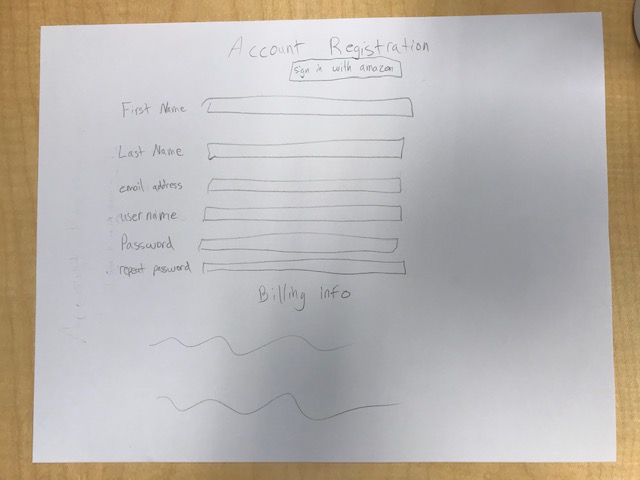 Account Registration
sign in with amazon
First Name
Last Name
email address
username
Password
repeat password
Billing info